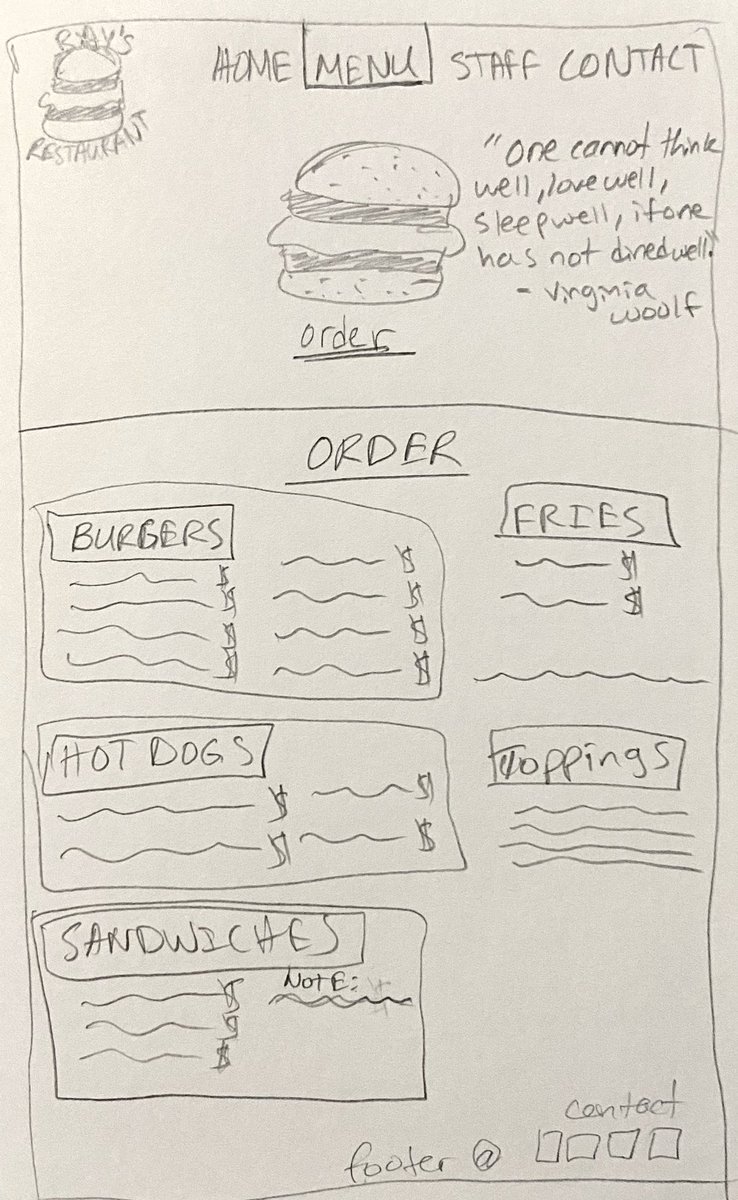 RAY'S
RESTAURANT
HOME MENU STAFF CONTACT
"One cannot think
well, love well,
sleep well, if one
has not dined well."
- Virginia
Woolf
order
ORDER
BURGERS
$
$
$
$
$
$
$
$
FRIES
$
$
HOT DOGS
$
$
$
$
Toppings
SANDWICHES
$
$
$
NOTE:
contact
footer @